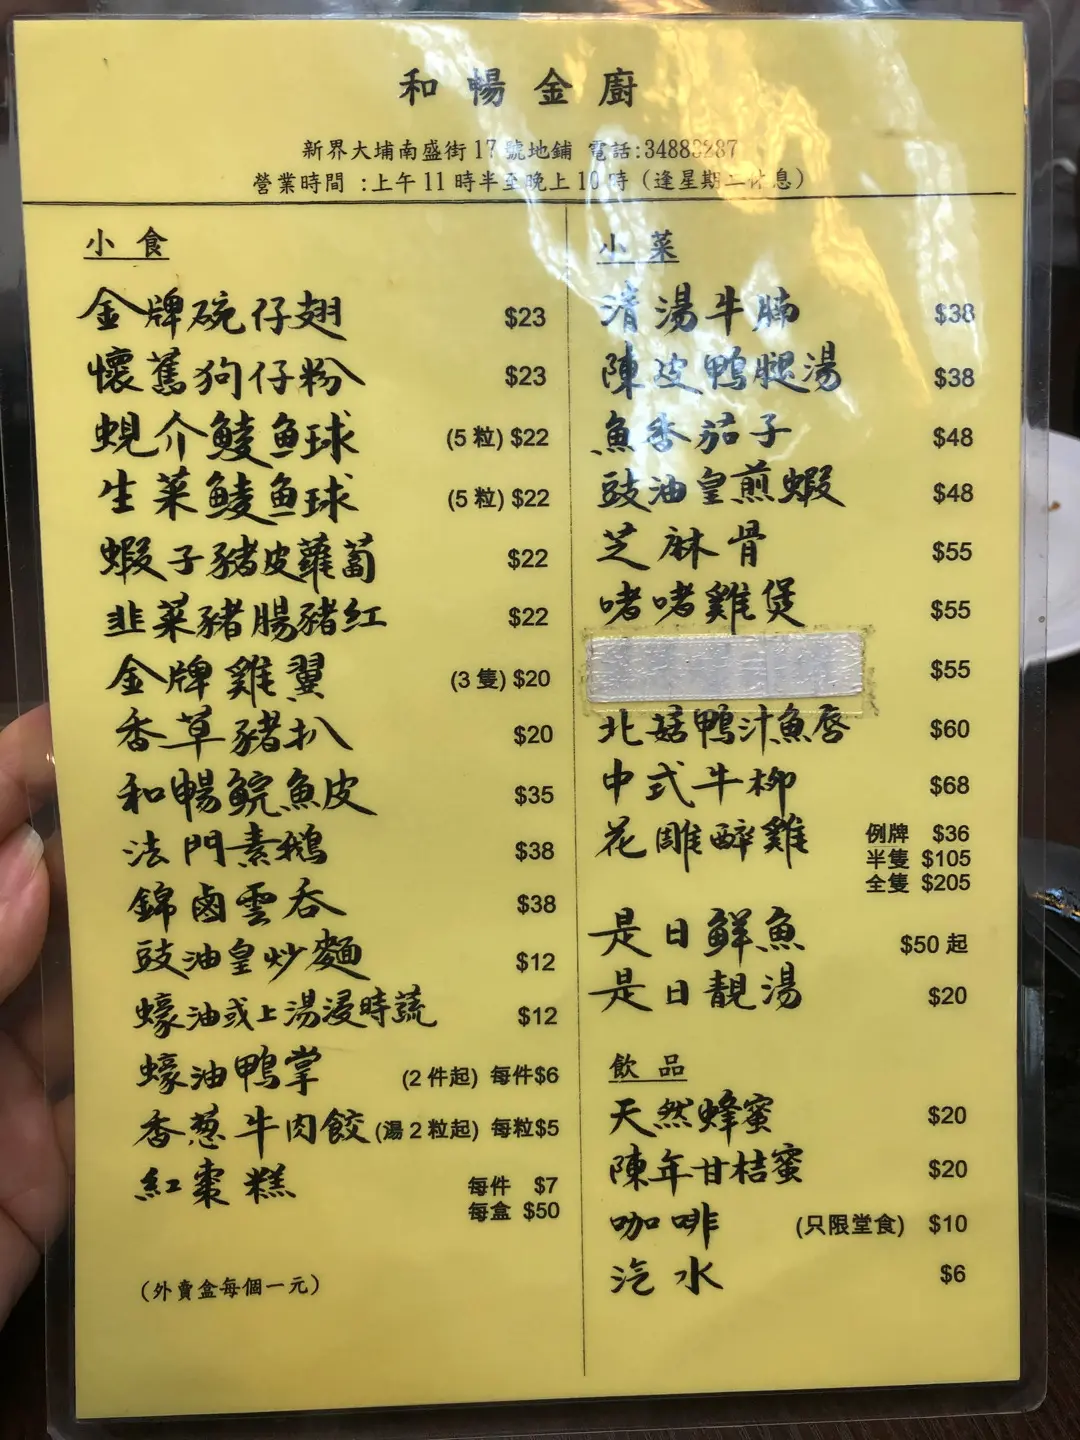 和暢金廚
新界大埔南盛街17號地鋪 電話:34883287
營業時間 :上午11時半至晚上10時（逢星期二休息）
小食
金牌碗仔翅 $23
懷舊狗仔粉 $23
蜆介鯪魚球 (5粒) $22
生菜鯪魚球 (5粒) $22
蝦子豬皮蘿蔔 $22
韭菜豬腸豬紅 $22
金牌雞翼 (3隻) $20
香草豬扒 $20
和暢鯇魚皮 $35
法門素鵝 $38
錦鹵雲吞 $38
豉油皇炒麵 $12
蠔油或上湯浸時蔬 $12
蠔油鴨掌 (2件起) 每件$6
香葱牛肉餃 (湯2粒起) 每粒$5
紅棗糕 每件 $7
每盒 $50
（外賣盒每個一元）
小菜
清湯牛腩 $38
陳皮鴨腿湯 $38
魚香茄子 $48
豉油皇煎蝦 $48
芝麻骨 $55
啫啫雞煲 $55
$55
北菇鴨汁魚唇 $60
中式牛柳 $68
花雕醉雞 例牌 $36
半隻 $105
全隻 $205
是日鮮魚 $50起
是日靚湯 $20
飲品
天然蜂蜜 $20
陳年甘桔蜜 $20
咖啡 (只限堂食) $10
汽水 $6